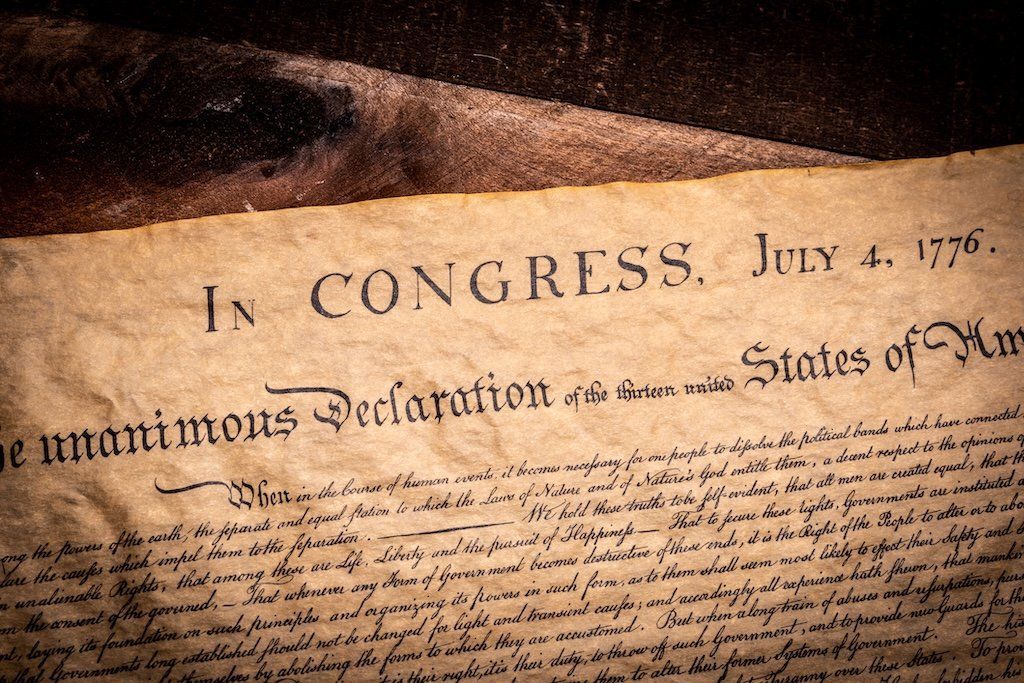 In CONGRESS, July 4, 1776.
e unanimous Declaration of the thirteen united States of Am
When in the Course of human events, it becomes necessary for one people to dissolve the political bands which have connected
ong the powers of the earth, the separate and equal station to which the Laws of Nature and of Nature's God entitle them, a decent respect to the opinions of
are the causes which impel them to the separation. — We hold these truths to be self-evident, that all men are created equal, that th
n unalienable Rights, that among these are Life, Liberty and the pursuit of Happiness. — That to secure these rights, Governments are instituted a
m the consent of the governed, — That whenever any Form of Government becomes destructive of these ends, it is the Right of the People to alter or to abo
nt, laying its foundation on such principles and organizing its powers in such form, as to them shall seem most likely to effect their Safety and
that Governments long established should not be changed for light and transient causes; and accordingly all experience hath shewn, that mankin
themselves by abolishing the forms to which they are accustomed. But when a long train of abuses and usurpations, purs
is their right, it is their duty, to throw off such Government, and to provide new Guards for th
them to alter their former Systems of Government. The his
Tyranny over these States. To prov